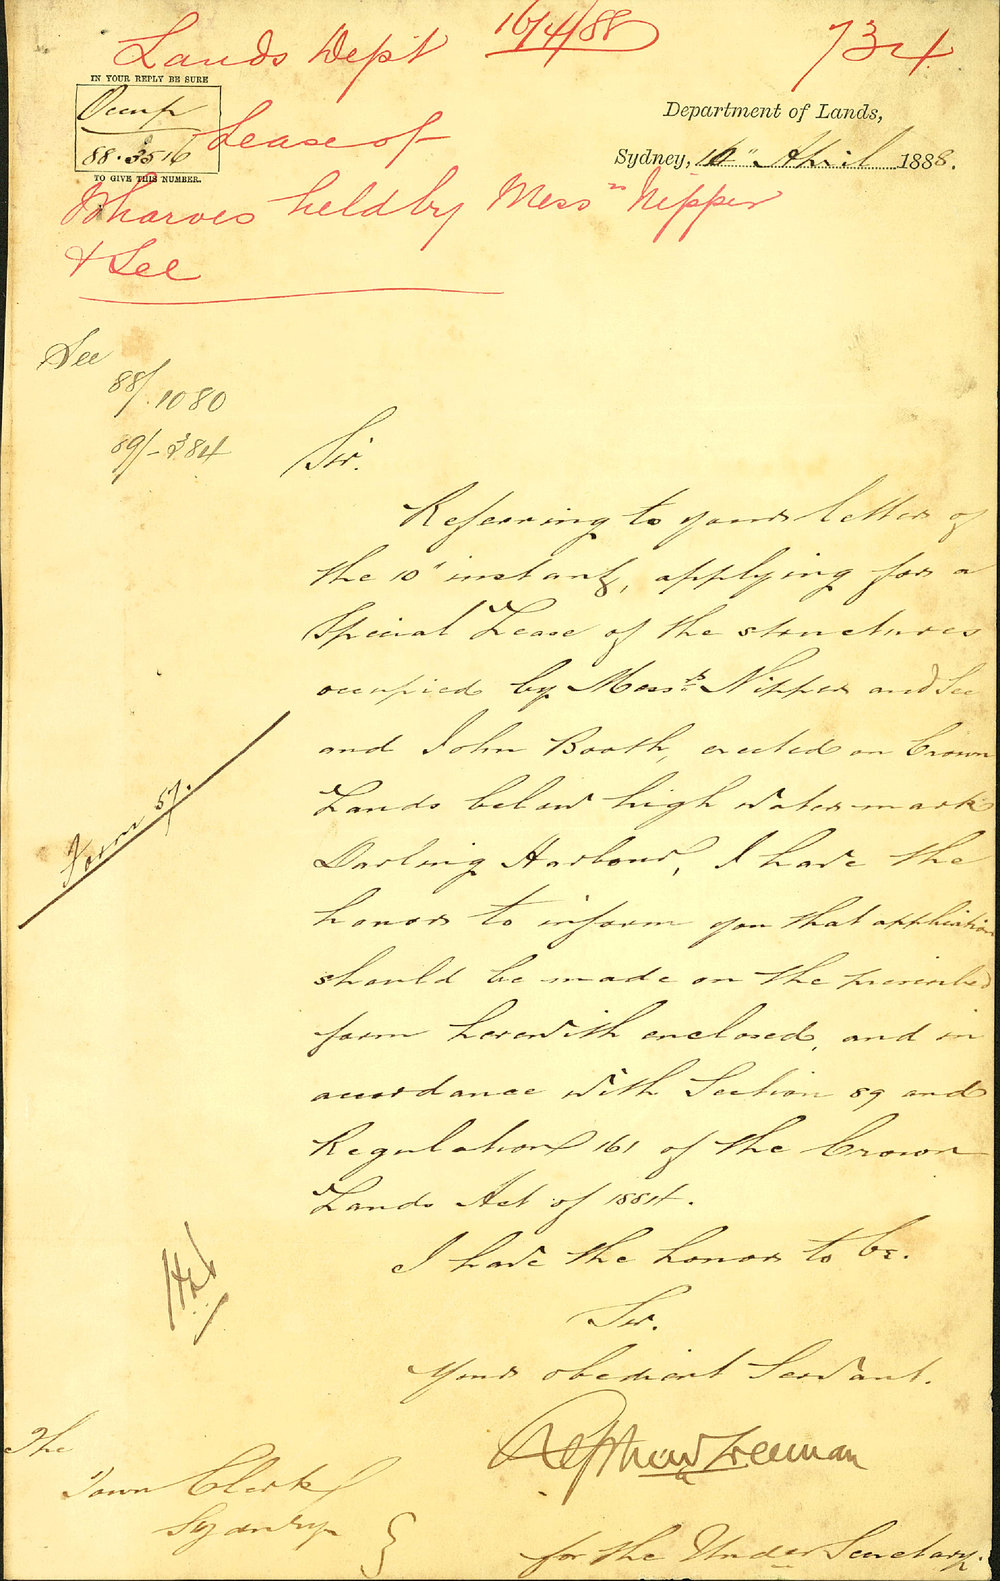 Lands Dept 16/4/88 734
IN YOUR REPLY BE SURE
Occup
88.3516
TO GIVE THIS NUMBER.
Department of Lands,
Sydney, 16" April 1888.
Lease of
Wharves held by Messrs Nipper
& See
See
88/.1080
89/-384
Sir.
Referring to your letter of
the 10" instant, applying for a
Special Lease of the structures
occupied by Messrs. Nipper and See
and John Booth, erected on Crown
Lands below high water mark
Darling Harbour, I have the
honor to inform you that application
should be made on the prescribed
form herewith enclosed, and in
accordance with Section 89 and
Regulation 161 of the Crown
Lands Act of 1884.
Form 57.
I have the honor to be.
Sir.
Your obedient Servant.
Freeman
for the Under Secretary.
The
Town Clerk
Sydney